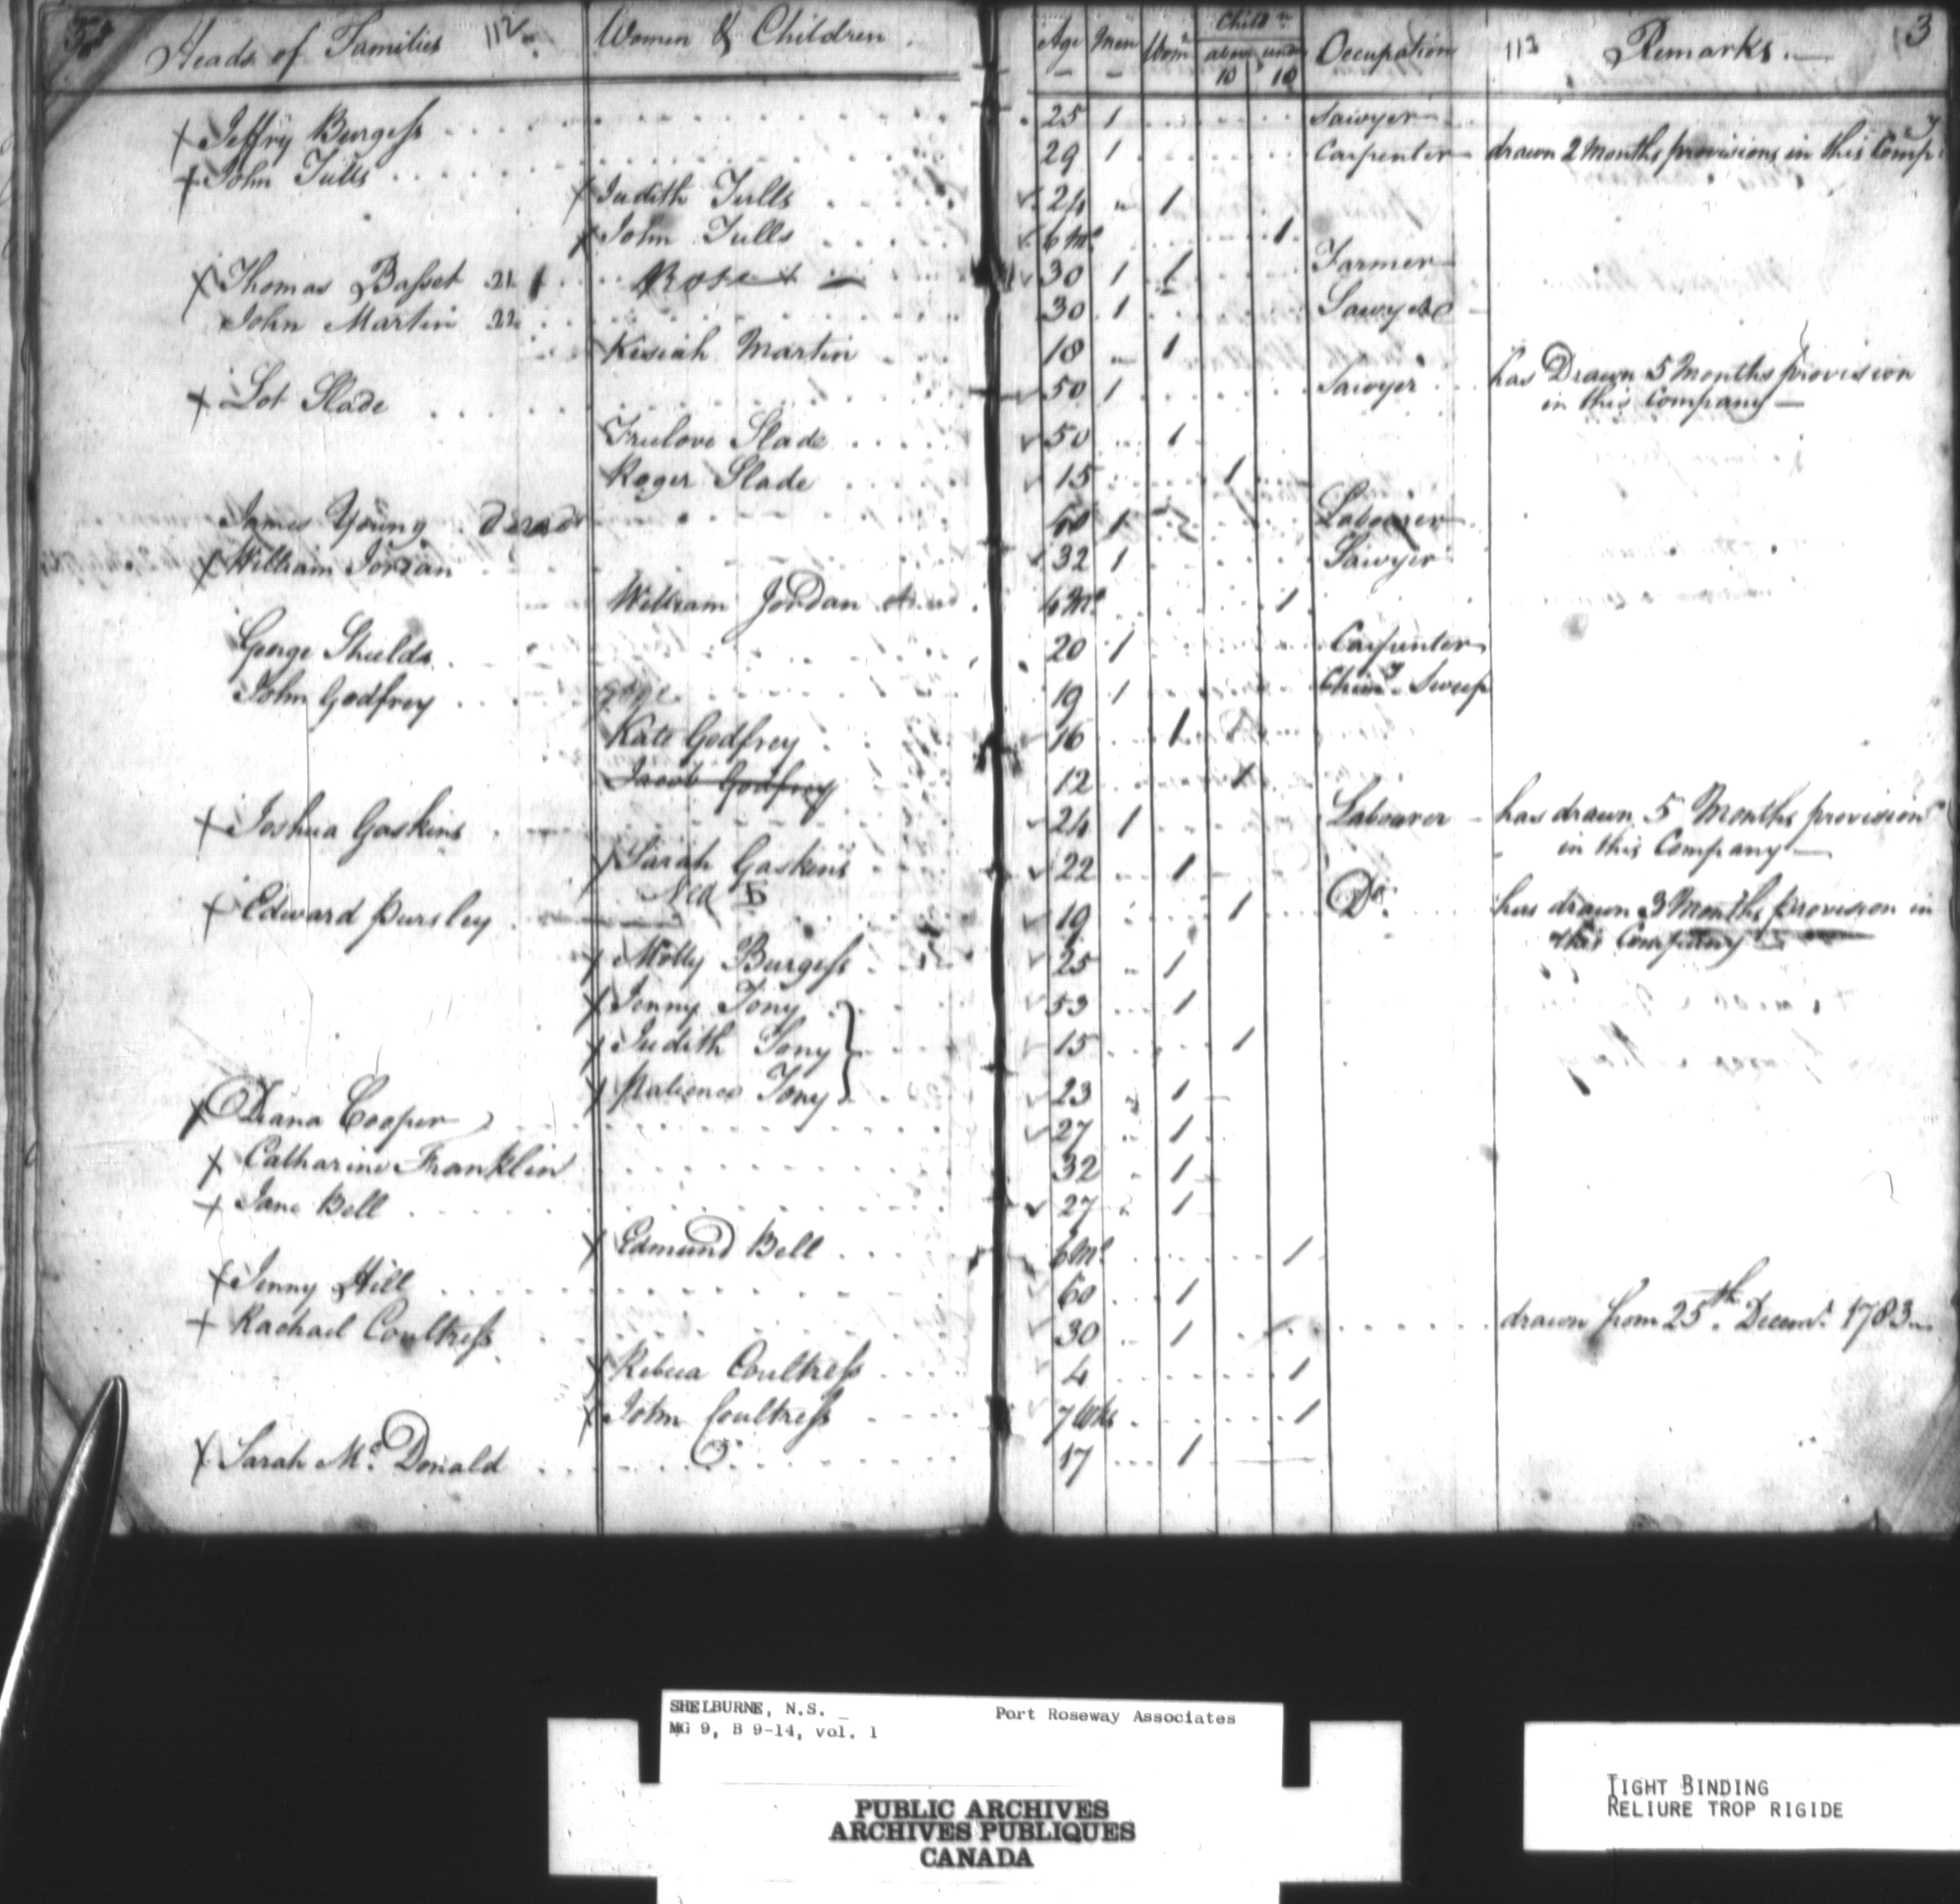 Heads of Families 112 Women & Children Age Men Wom.n Child.n above 10 under 10 Occupation 113 Remarks 3
x Jeffry Burgess 25 1 Sawyer
x John Tulls 29 1 Carpenter drawn 2 Months provisions in this Comp.y
x Judith Tulls 24 1
x John Tulls 6 M.s 1
x Thomas Basset 21 Rose 30 1 1 Farmer
John Martin 22 30 1 Sawyer
Kisiah Martin 18 1
x Lot Slade 50 1 Sawyer has Drawn 5 Months provision
in this Company
Trulove Slade 50 1
Roger Slade 15 1
James Young Dead 60 1 Labourer
x William Jordan 32 1 Sawyer
William Jordan 6 M.s 1
George Shields 20 1 Carpenter
John Godfrey 19 1 Chim.y Sweep
Kate Godfrey 16 1
Jacob Godfrey 12 1
x Joshua Gaskins 24 1 Labourer has drawn 5 Months provision
in this Company
x Sarah Gaskins 22 1
x Edward Pursley 19 1 D.o has drawn 3 Months provision in
this Company
x Molly Burgess 25 1
x Jenny Tony 53 1
x Judith Tony 15 1
x Patience Tony 23 1
x Diana Cooper 27 1
x Catharine Franklin 32 1
x Jane Bell 27 1
x Edmund Bell 6 M.s 1
x Jenny Hill 60 1
x Rachael Coultress 30 1 drawn from 25.th Decem.r 1783
x Rebeca Coultress 4 1
x John Coultress 7 Wks 1
x Sarah M.c Donald 17 1
SHELBURNE, N.S. Port Roseway Associates
MG 9, B 9-14, vol. 1
PUBLIC ARCHIVES
ARCHIVES PUBLIQUES
CANADA
TIGHT BINDING
RELIURE TROP RIGIDE